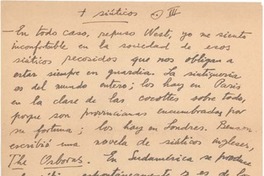 + siúticos III
— En todo caso, repuso West, yo me siento
incomfortible en la sociedad de esos
siúticos recosidos que nos obligan a
estar siempre en guardia. La siutiquería
es del mundo entero; los hay en París
en la clase de las cocottes sobre todo,
porque son provincianas encumbradas por
su fortuna; los hay en Londres.
escribió una novela de siúticos ingleses,
The Osbornes. En Sudamérica se produce
espontáneamente